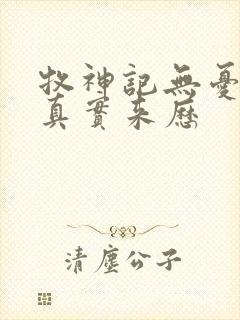 牧神記無憂
真實来歷
清塵公子